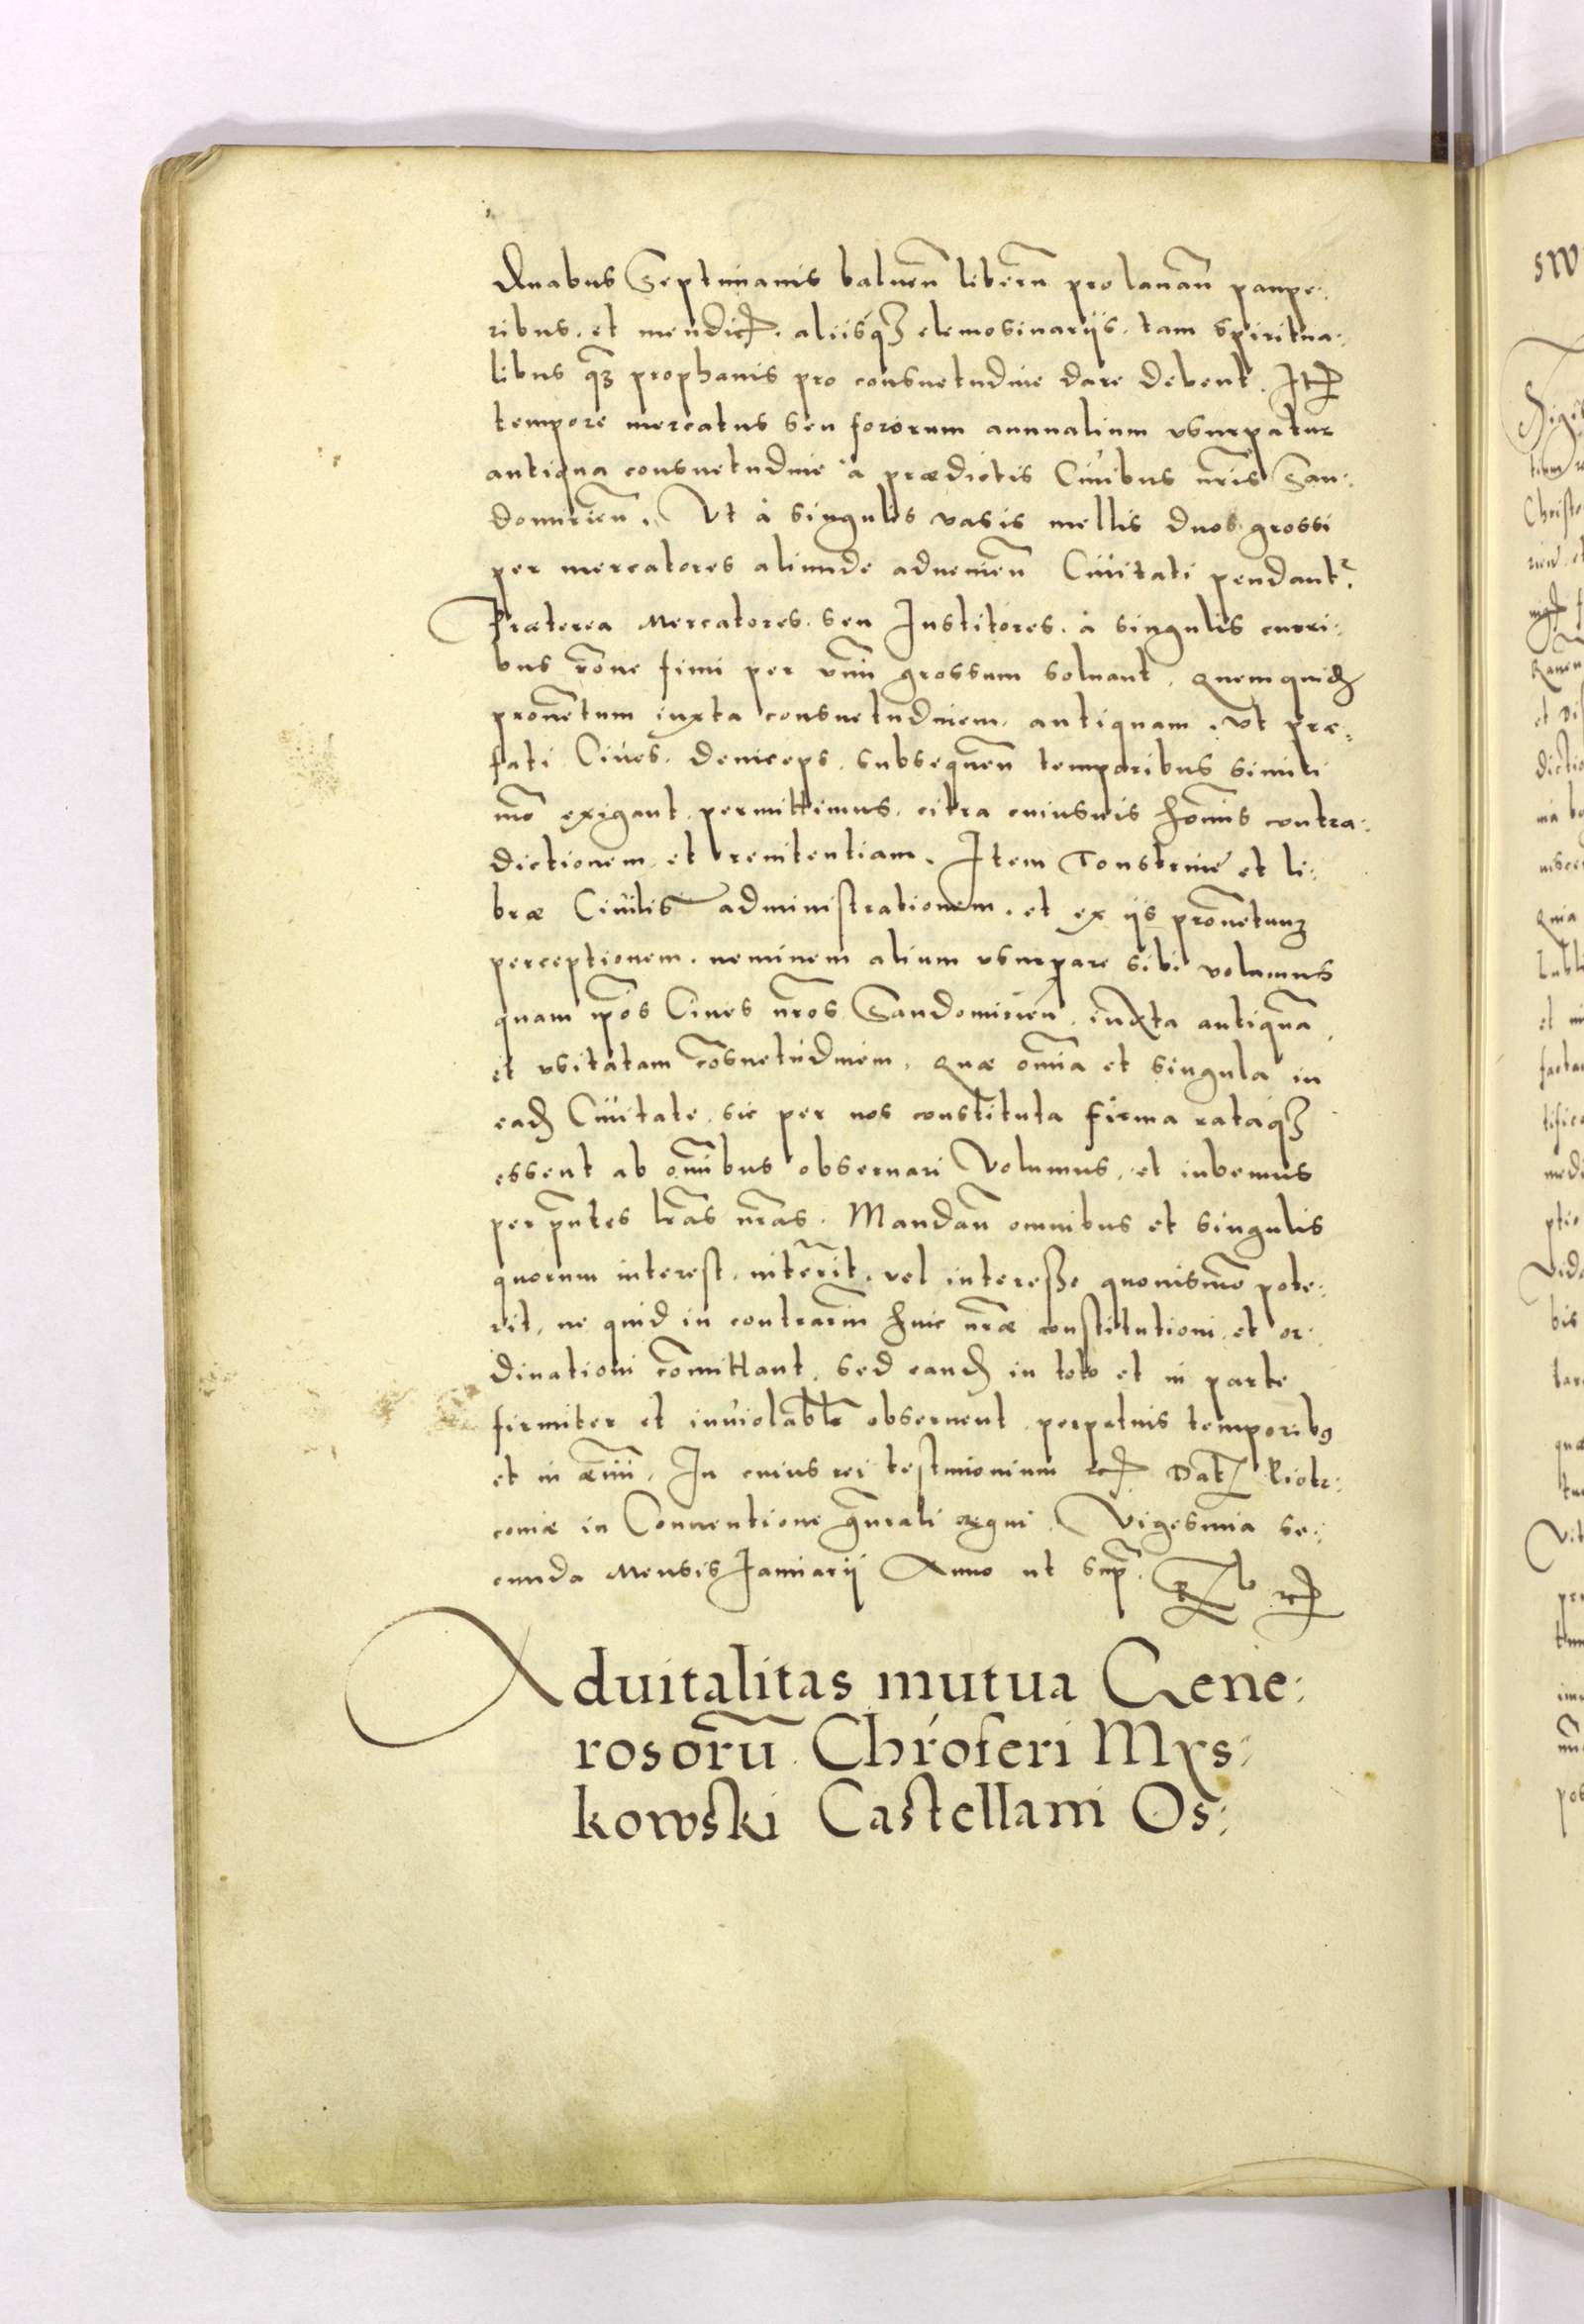 Duabus Septimanis balneū liberū pro lauanū paupe:
ribus. et mendic. aliisq3 elemosinariis. tam spiritua:
libus q3 prophanis pro consuetudine dare debent. It
tempore mercatus seu fororum annualium vsurpatur
antiqua consuetudine à prædictis Ciuibus nris San:
domirien̄. Vt à singulis vasis mellis duos grossi
per mercatores aliunde aduenien̄ Ciuitati pendant.
Præterea Mercatores. seu Institores. à singulis curri:
bus rōne fimi per vnū grossum soluant. Quemquid
prouentum iuxta consuetudinem. antiquam. vt præ:
fati Ciues. deinceps. subsequen̄ temporibus simili
mō exigant permittimus. citra cuiusuis homīs contra:
dictionem et renitentiam. Item Tonstrinæ et li:
bræ Ciuilis administrationem. et ex iis prouentum
perceptionem. neminem alium vsurpare sibi volumus
quam ipōs Ciues nros Sandomirien̄. iuxta antiquā
et vsitatam cōsuetudinem. Quæ omīa et singula in
ead Ciuitate. sic per nos constituta firma rataq3
essent ab omībus obseruari Volumus. et iubemus
per pn̄tes lrās nrās. Mandan̄ omnibus et singulis
quorum interest. intererit. vel interesse quouismō pote:
rit. ne quid in contrariū huic nræ constitutioni. et or:
dinationi cōmittant. sed eand in toto et in parte
firmiter et inuiolabl̄r obseruent perpetuis temporib9
et in æuū. In cuius rei testimonium etc Dat Piotr:
couiæ in Conuentione gn̄rali regni. Vigesima se:
cunda Mensis Januarii Anno ut sup̄.
Aduitalitas mutua Gene:
rosorū Chrōferi Mys:
kowski Castellani Os: